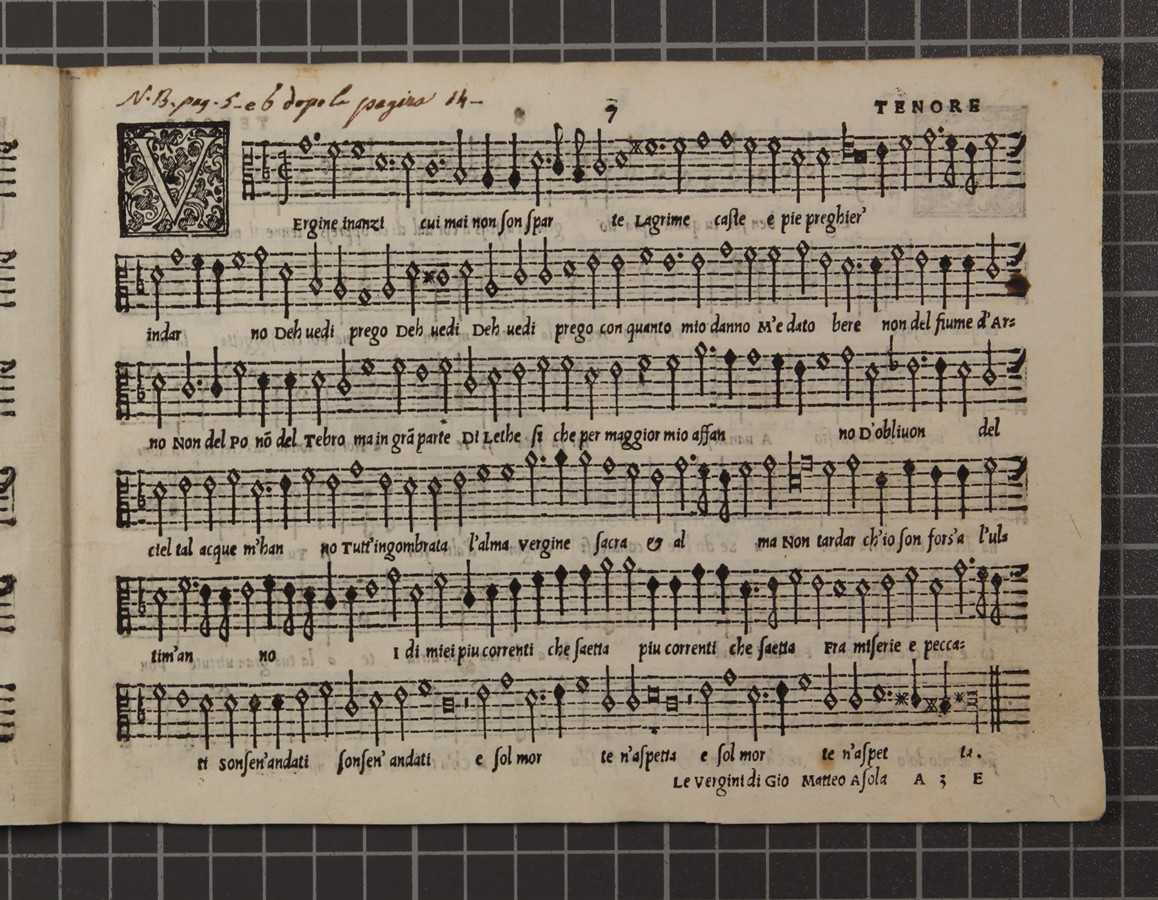 N.B. pag. 5. e 6 dopo la pagina 14
7
TENORE
VErgine inanzi cui mai non ſon ſpar te Lagrime caſte e pie preghier'
indar no Deh uedi prego Deh uedi Deh uedi prego con quanto mio danno M'e dato bere non del fiume d'Ar:
no Non del Po nõ del Tebro ma in grã parte Di Lethe ſi che per maggior mio affan no D'obliuon del
ciel tal acque m'han no Tutt'ingombrata l'alma Vergine ſacra & al ma Non tardar ch'io ſon fors'a l'ul:
tim'an no I di miei piu correnti che ſaetta piu correnti che ſaetta Fra miſerie e pecca:
ti Sonſen'andati ſonſen' andati e ſol mor te n'aſpetta e ſol mor te n'aſpet ta.
Le Vergini di Gio Matteo Aſola A 3 E